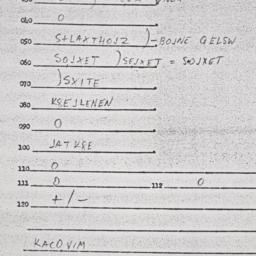 040 0
050 S+LAXTHOJZ )-BOJNE GELSW
060 SOJXET )SEJXET = SOJXET
070 )SXITE
080 KSEJLENEN
090 0
100 JATKSE
110 0
111 0 112 0
120 +/-
KACOVIM